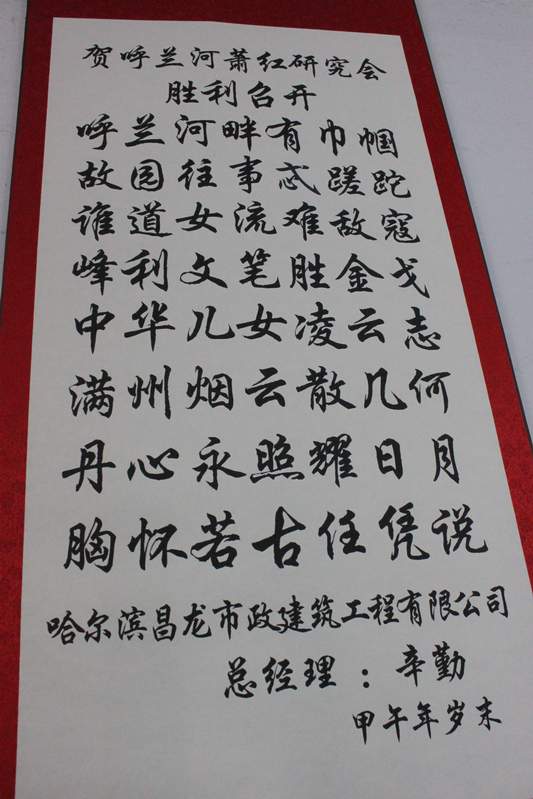 贺呼兰河萧红研究会
胜利召开
呼兰河畔有巾帼
故园往事忒蹉跎
谁道女流难敌寇
峰利文笔胜金戈
中华儿女凌云志
满州烟云散几何
丹心永照耀日月
胸怀若古任凭说
哈尔滨昌龙市政建筑工程有限公司
总经理：辛勤
甲午年岁末